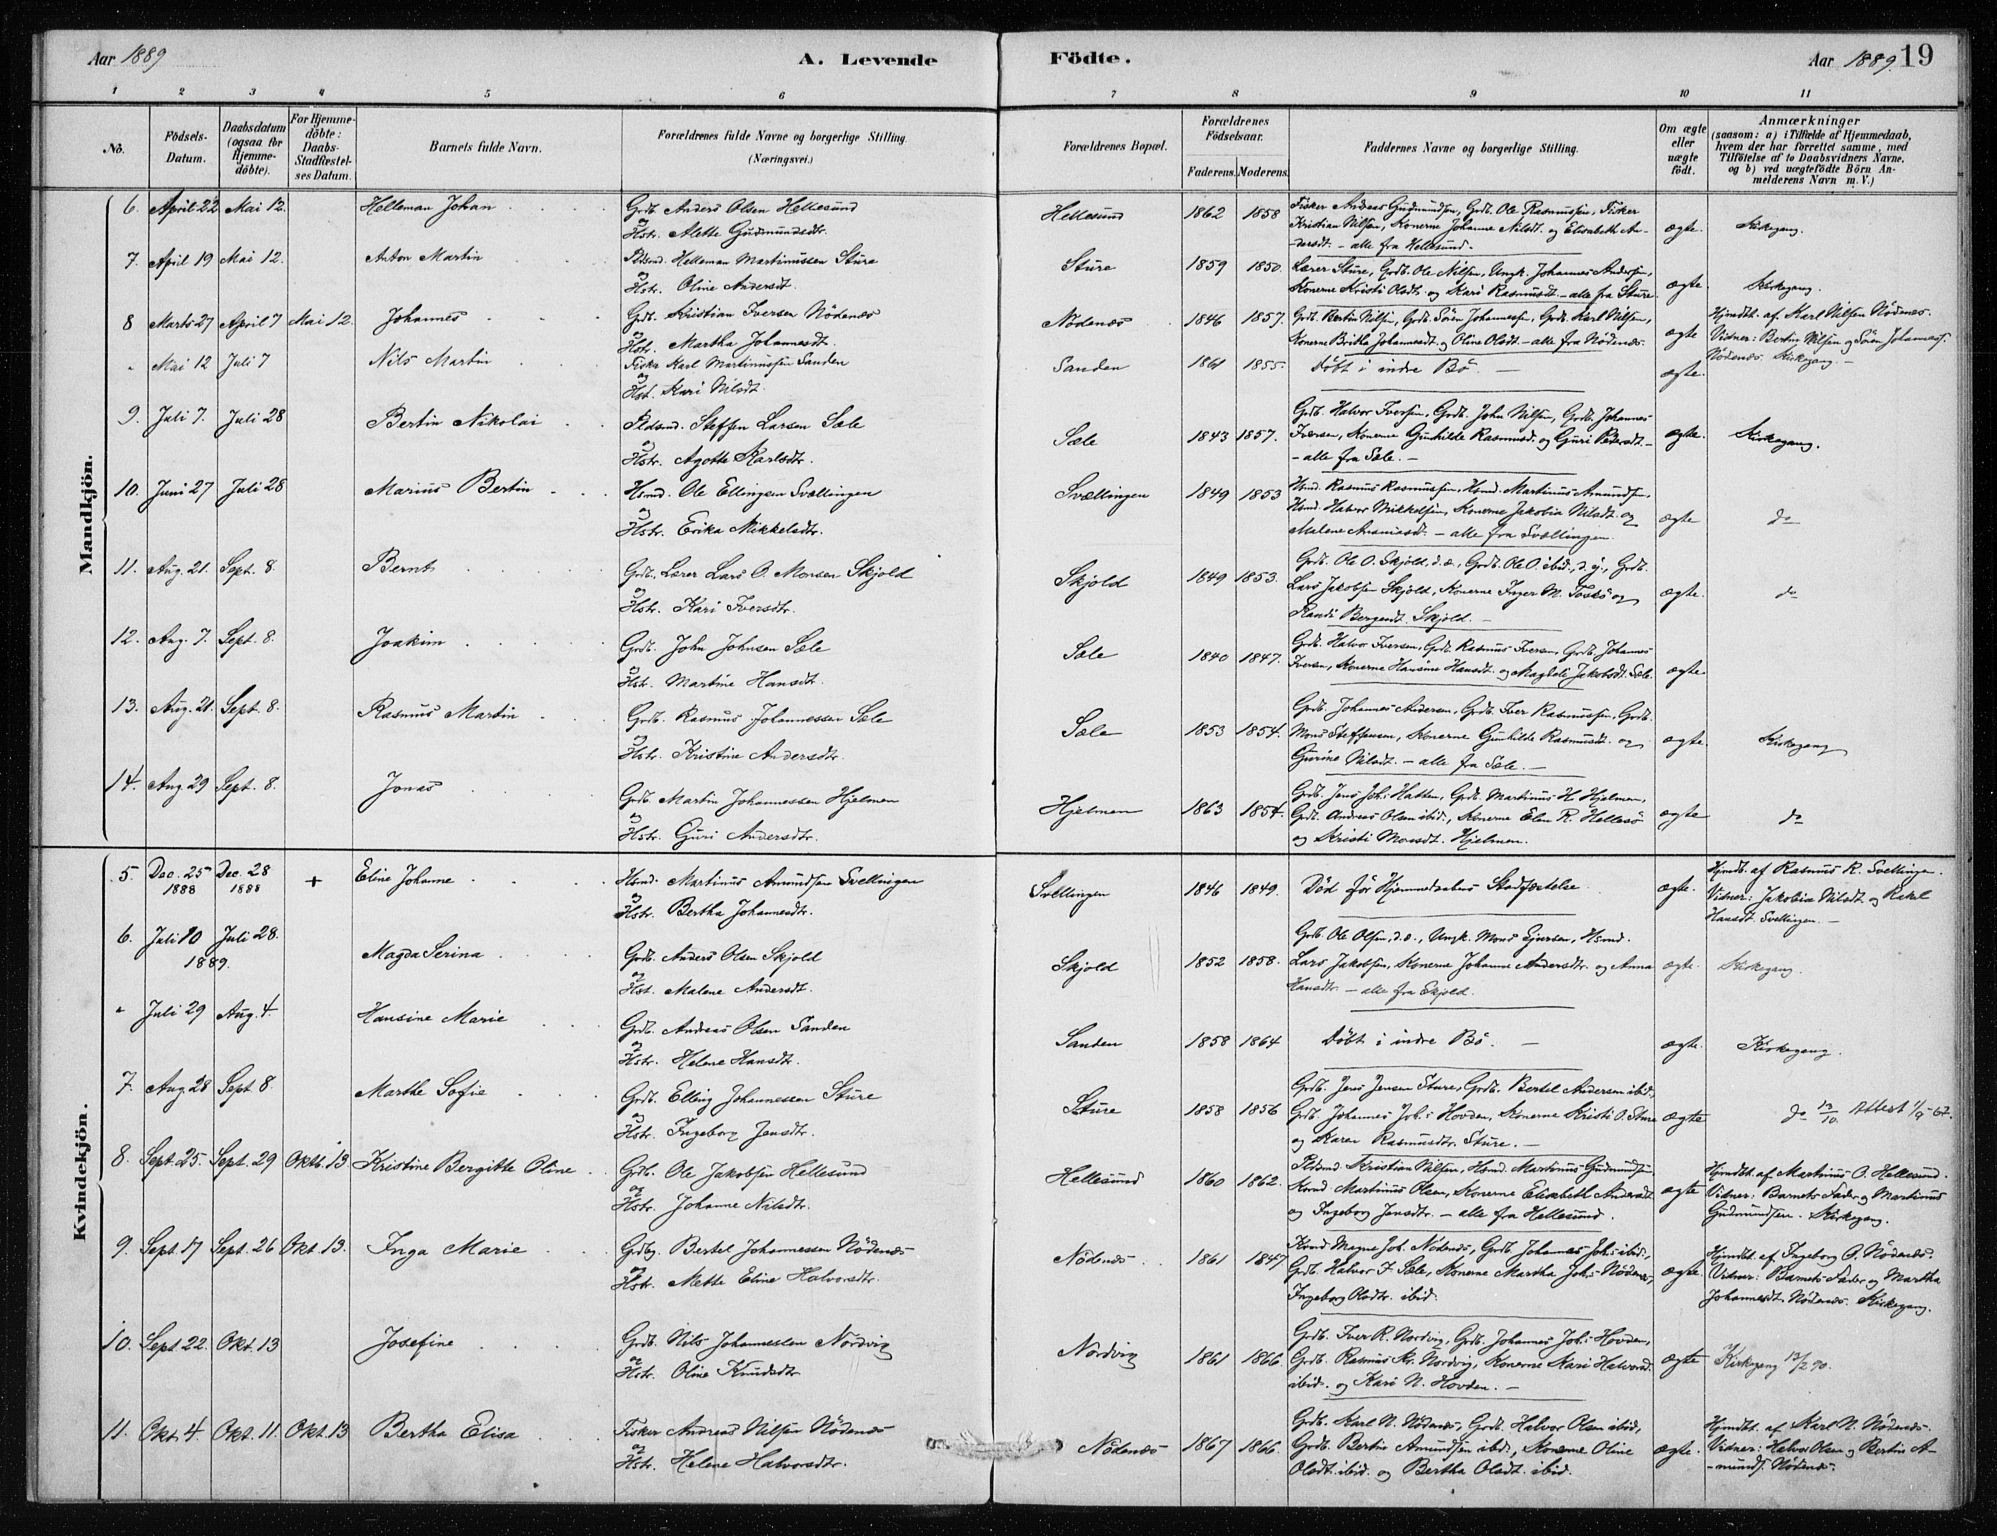 Aar 1889
A. Levende
Födte.
Aar 1889.
19
1 2 3 4 5 6 7 8 9 10 11
No.
Födsels-Datum.
Daabsdatum (ogsaa for Hjemmedöbte).
For Hjemmedöbte: Daabs-Stadfæstelses Datum.
Barnets fulde Navn.
Forældrenes fulde Navne og borgerlige Stilling. (Næringsvei.)
Forældrenes Bopæl.
Forældrenes Födselsaar.
Faderens. Moderens.
Faddernes Navne og borgerlige Stilling.
Om ægte eller uægte födt.
Anmærkninger
(saasom: a) i Tilfælde af Hjemmedaab, hvem der har forrettet samme, med Tilföielse af to Daabsvidners Navne, og b) ved uægtefödte Börn Anmelderens Navn m. V.)
Mandkjön.
6. April 22 Mai 12. Helleman Johan
Grdb. Anders Olsen Hellesund
og
Hstr. Alette Gudmundsdtr.
Hellesund 1862 1858
Fisker Andreas Gudmundsen, Grdb. Ole Rasmussen, Fisker
Kristian Nilsen, Konerne Johanne Nilsdt. og Elisabeth An-
-dersdt. - alle fra Hellesund. -
ægte. Kirkegang.
7. April 19 Mai 12. Anton Martin
Pldsmd. Helleman Martinussen Sture
og
Hstr. Oline Andersdt.
Sture 1859 1850.
Lærer Sture, Grdb. Ole Nilsen, Ungk. Johannes Andersen,
Konerne Kristi Olsdt. og Kari Rasmusdt. - alle fra Sture.
ægte. Kirkegang.
8 Marts 27 April 7 Mai 12. Johannes
Grdb. Kristian Iversen Nödenæs
og
Hstr. Martha Johannesdt.
Nödenæs 1846 1857.
Grdb. Bertin Nilsen, Grdb. Sören Johannessen, Grdb. Karl Nilsen,
Konerne Britha Johannesdt. og Oline Olsdt. - alle fra Nödenæs.
ægte
Hjmdbt. af Karl Nilsen Nödenæs.
Vidner: Bertin Nilsen og Sören Johanness.
Nödenæs. Kirkegang. -
" Mai 12 Juli 7 Nils Martin
Fisker Karl Martinussen Sanden
og
Hst. Kari Nilsdt.
Sanden 1861 1855. Döbt i indre Bö. - ægte.
9. Juli 7. Juli 28 Bertin Nikolai
Pldsmd. Steffen Larsen Sæle
og
Hstr. Agotte Karlsdtr.
Sæle 1843 1857.
Grdb. Halvor Iversen, Grdb. John Nilsen, Grdb. Johannes
Iversen, Konerne Gunhilde Rasmusd. og Guri Pedersdt.
- alle fra Sæle. -
ægte. Kirkegang.
10. Juni 27 Juli 28 Marius Bertin
Hsmd. Ole Ellingsen Svællingen
og
Hstr. Erika Mikkelsdtr.
Svællingen 1849 1853
Hsmd. Rasmus Rasmussen, Hsmd. Martinus Amundsen,
Hsmd. Halvor Mikkelsen, Konerne Jakobia Nilsdt. og
Malene - alle fra Svællingen.
ægte do
11. Aug. 21. Sept. 8. Bernt
Grdb., Lærer Lars O. Monsen Skjold
og
Hstr. Kari Iversdtr.
Skjold 1849 1853.
Grdb. Ole O. Skjold, d. æ., Grdb. Ole O. ibid., d. y., Grdb.
Lars Jakobsen Skjold, Konerne Inger M. Toskö og
Randi Bergesdt. Skjold. -
ægte. do
12. Aug. 7. Sept. 8. Joakim
Grdb. John Johnsen Sæle
og
Hstr. Martine Hansdt.
Sæle 1840 1847.
Grdb. Halvor Iversen, Grdb. Rasmus Iversen, Grdb. Johannes
Iversen, Konerne Hansine Hansdt. og Magdeli Jakobsdt. Sæle.
ægte
13. Aug. 21. Sept. 8. Rasmus Martin
Grdb. Rasmus Johannessen Sæle
og
Hstr. Kristine Andersdtr.
Sæle 1853 1854.
Grdb. Johannes Andersen, Grdb. Iver Rasmussen, Grdb.
Mons Steffensen, Konerne Gunhilde Rasmusdt. og
Gurine Nilsdt. - alle fra Sæle. -
ægte. Kirkegang
14. Aug 29 Sept. 8. Jonas
Grdb. Martin Johannessen Hjelmen
og
Hstr. Guri Andersdtr.
Hjelmen 1863 1854.
Grdb. Jens Joh.s Hatten, Grdb. Martinus H. Hjelmen,
Grdb. Andreas Olsen ibid., Konerne Elen R. Hellesö
og Kristi Monsdt. Hjelmen.
ægte do
Kvindekjön.
5. Dec. 25 1888 Dec. 28 1888 + Eline Johanne
Hsmd. Martinus Amundsen Svellingen
og
Hstr. Bertha Johannesdtr.
Svellingen 1846 1849. Död för Hjemmedaabens Stadfæstelse. ægte.
Hjmdb. af Rasmus R. Svellingen.
Vidner: Jakobia Nilsdt. og Rakel
Hansdt. Svellingen. -
6. Juli 10 Juli 28. 1889. Magda Serina
Grdb. Anders Olsen Skjold
og
Hst. Malene Andersdt.
Skjold 1852 1858.
Grdb. Ole Olsen, d. æ., Ungk. Mons Sjursen, Hsmd.
Lars Jakobsen, Konerne Johanne Andersdtr. og Anna
Hansdtr. - alle fra Skjold.
ægte. Kirkegang.
" Juli 29 Aug. 4. Hansine Marie
Grdb. Andreas Olsen Sanden
og
Hstr. Helene Hansdt.
Sanden 1858 1864 Döbt i indre Bö. - ægte. Kirkegang.
7. Aug 28 Sept 8. Marthe Sofie
Grdb. Elling Johannessen Sture
og
Hstr. Ingeborg Jensdtr.
Sture 1858 1856
Grdb. Jens Jensen Sture, Grdb. Bertel Andersen ibid.,
Grdb. Johannes Joh.s Hovden, Konerne Kristi O. Sture
og Karen Rasmusdtr. Sture. -
ægte do 13/10. Attest 1/9-62.
8. Sept. 25. Sept. 29 Oktb. 13 Kristine Bergitte Oline
Grdb. Ole Jakobsen Hellesund
og
Hstr. Johanne Nilsdtr.
Hellesund 1860 1862.
Pldsmd. Kristian Nilsen, Hsmd. Martinus Gudmundsen,
Martinus Olsen, Konerne Elisabeth Andersdt.
og Ingeborg Jensdtr. - alle fra Hellesund.
ægte
Hjmdbt. af Martinus O. Hellesund.
Vidner: Barnets Fader og Martinus
Gudmundsen. Kirkegang.
9. Sept. 17 Sept. 26 Okt. 13. Inga Marie
Grdbg. Bertel Johannessen Nödenæs
og
Hstr. Mette Eline Halvorsdtr.
Nödenæs 1861 1847
Magne Joh. Nödenæs, Grdb. Johannes Joh.s ibid.,
Grdb. Halvor I. Sæle, Konerne Martha Joh.s Nödenæs,
Ingeborg Olsdtr. ibid.
ægte.
Hjmdbt. af Ingeborg O. Nödenæs.
Vidner: Barnets Fader og Martha
Johannesdt. Nödenæs. Kirkegang.
10. Sept 22. Okt. 13 Josefine
Grdb. Nils Johannessen Nordvig
og
Hstr. Oline Knudsdtr
Nordvig 1861 1866.
Grdb. Iver R. Nordvig, Grdb. Johannes Joh.s Hovden,
Grdb. Rasmus Kr. Nordvig, Konerne Kari Halvorsd.
ibid. og Kari N. Hovden. -
ægte Kirkegang 13/2 90.
11. Okt. 4. Okt. 11. Okt. 13 Bertha Elisa
Fisker Andreas Nilsen Nödenæs
og
Hstr. Helene Halvorsdtr.
Nödenæs 1867 1866.
Grdb. Karl N. Nödenæs, Grdb. Halvor Olsen ibid,
Grdb. Bertin Amundsen ibid., Konerne Oline
Olsdt. ibid. og Bertha Olsdt. ibid.
ægte.
Hjmdbt. af Karl N. Nödenæs.
Vidner: Halvor Olsen og Bertin A-
-munds. Nödenæs.